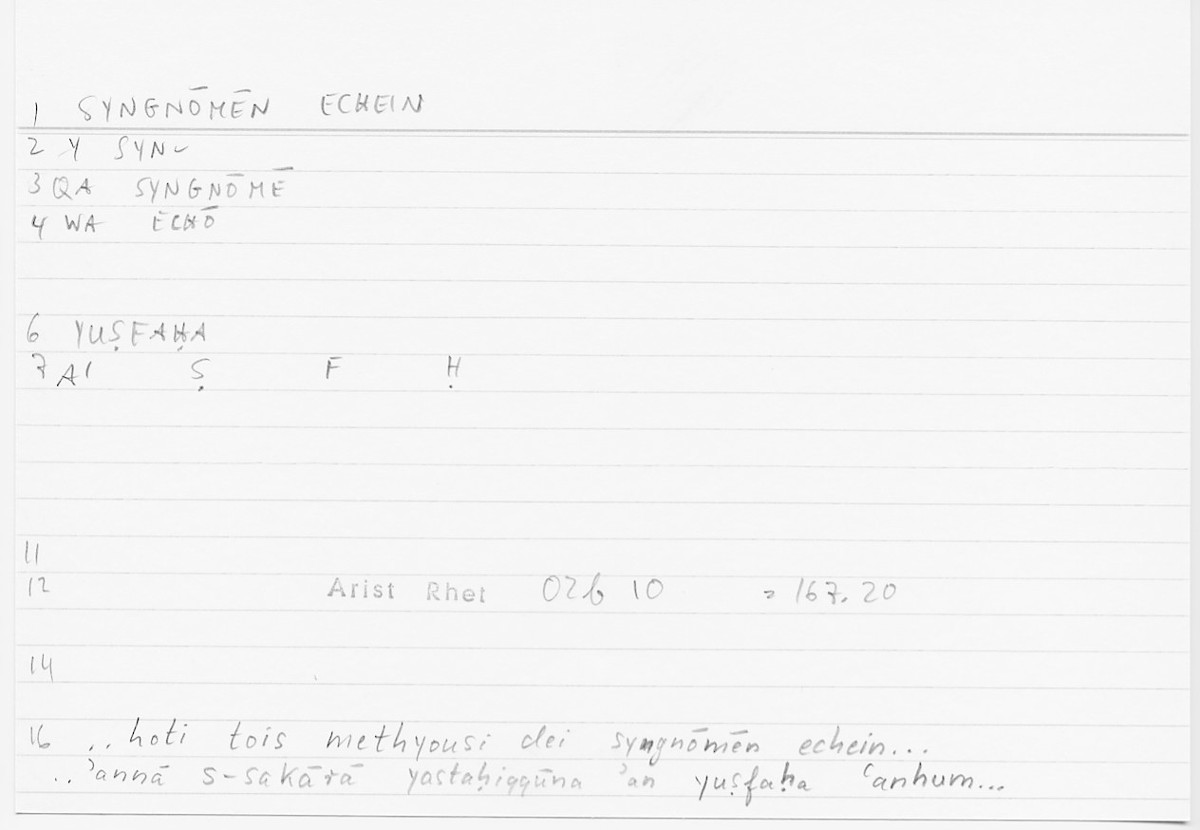 1 SYNGNŌMĒN ECHEIN
2 Y SYN~
3 QA SYNGNŌMĒ
4 WA ECHŌ
6 YUṢFAḤA
7 A' Ṣ F Ḥ
11
12 Arist Rhet 02b 10 = 167.20
14
16 ..hoti tois methyousi dei syngnōmēn echein...
..ʾannā s-sakārā yastaḥiqqūna ʾan yuṣfaḥa ʿanhum...